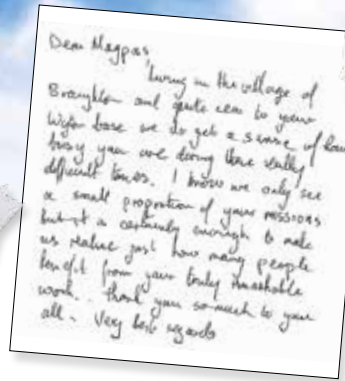 Dear Magpas,
living in the village of
Broughton and quite near to your
Wyton base we do get a sense of how
busy you are during these really
difficult times. I know we only see
a small proportion of your missions
but it is certainly enough to make
us realise just how many people
benefit from your truly remarkable
work. Thank you so much to you
all. Very best regards